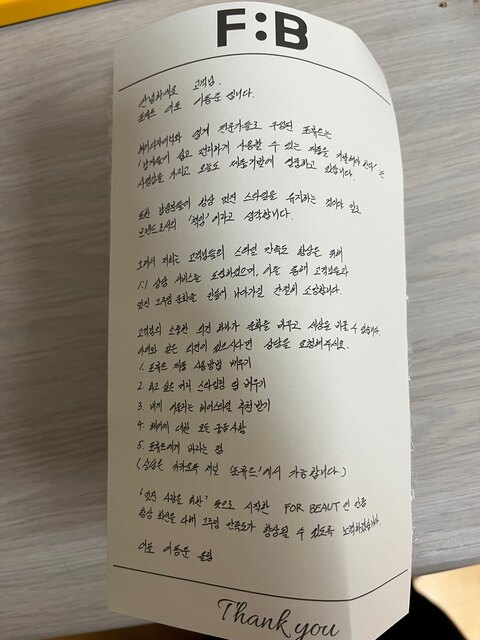 F:B
안녕하세요 고객님.
포뷰트 대표 이동준 입니다.
헤어디자이너와 설계 전문가들로 구성된 포뷰트는
'남자들이 쉽고 편리하게 사용할 수 있는 제품을 개발해야 한다' 는
사명감을 가지고 오늘도 제품개발에 열중하고 있습니다.
또한 남성분들이 항상 멋진 스타일을 유지하는 것이야 말로
브랜드로서의 '책임' 이라고 생각합니다.
그래서 저희는 고객님들의 스타일 만족도 향상을 위해
1:1 상담 서비스를 도입하였으며, 이를 통해 고객님들과
멋진 그루밍 문화를 만들어 나아가길 간절히 소망합니다.
고객님의 소중한 의견 하나가 문화를 바꾸고 세상을 바꿀 수 있습니다.
아래와 같은 의견이 있으시다면 상담을 요청해주세요.
1. 포뷰트 제품 사용방법 배우기
2. 하고 싶은 머리 스타일링 팁 배우기
3. 나에게 어울리는 헤어스타일 추천 받기
4. 헤어에 대한 모든 궁금사항
5. 포뷰트에게 바라는 점
(상담은 카카오톡 채널 '포뷰트' 에서 가능합니다.)
'멋진 사람을 위한' 뜻으로 시작한 FOR BEAUT 인 만큼
항상 최선을 다해 그루밍 만족도가 향상될 수 있도록 노력하겠습니다.
대표 이동준 올림
Thank you